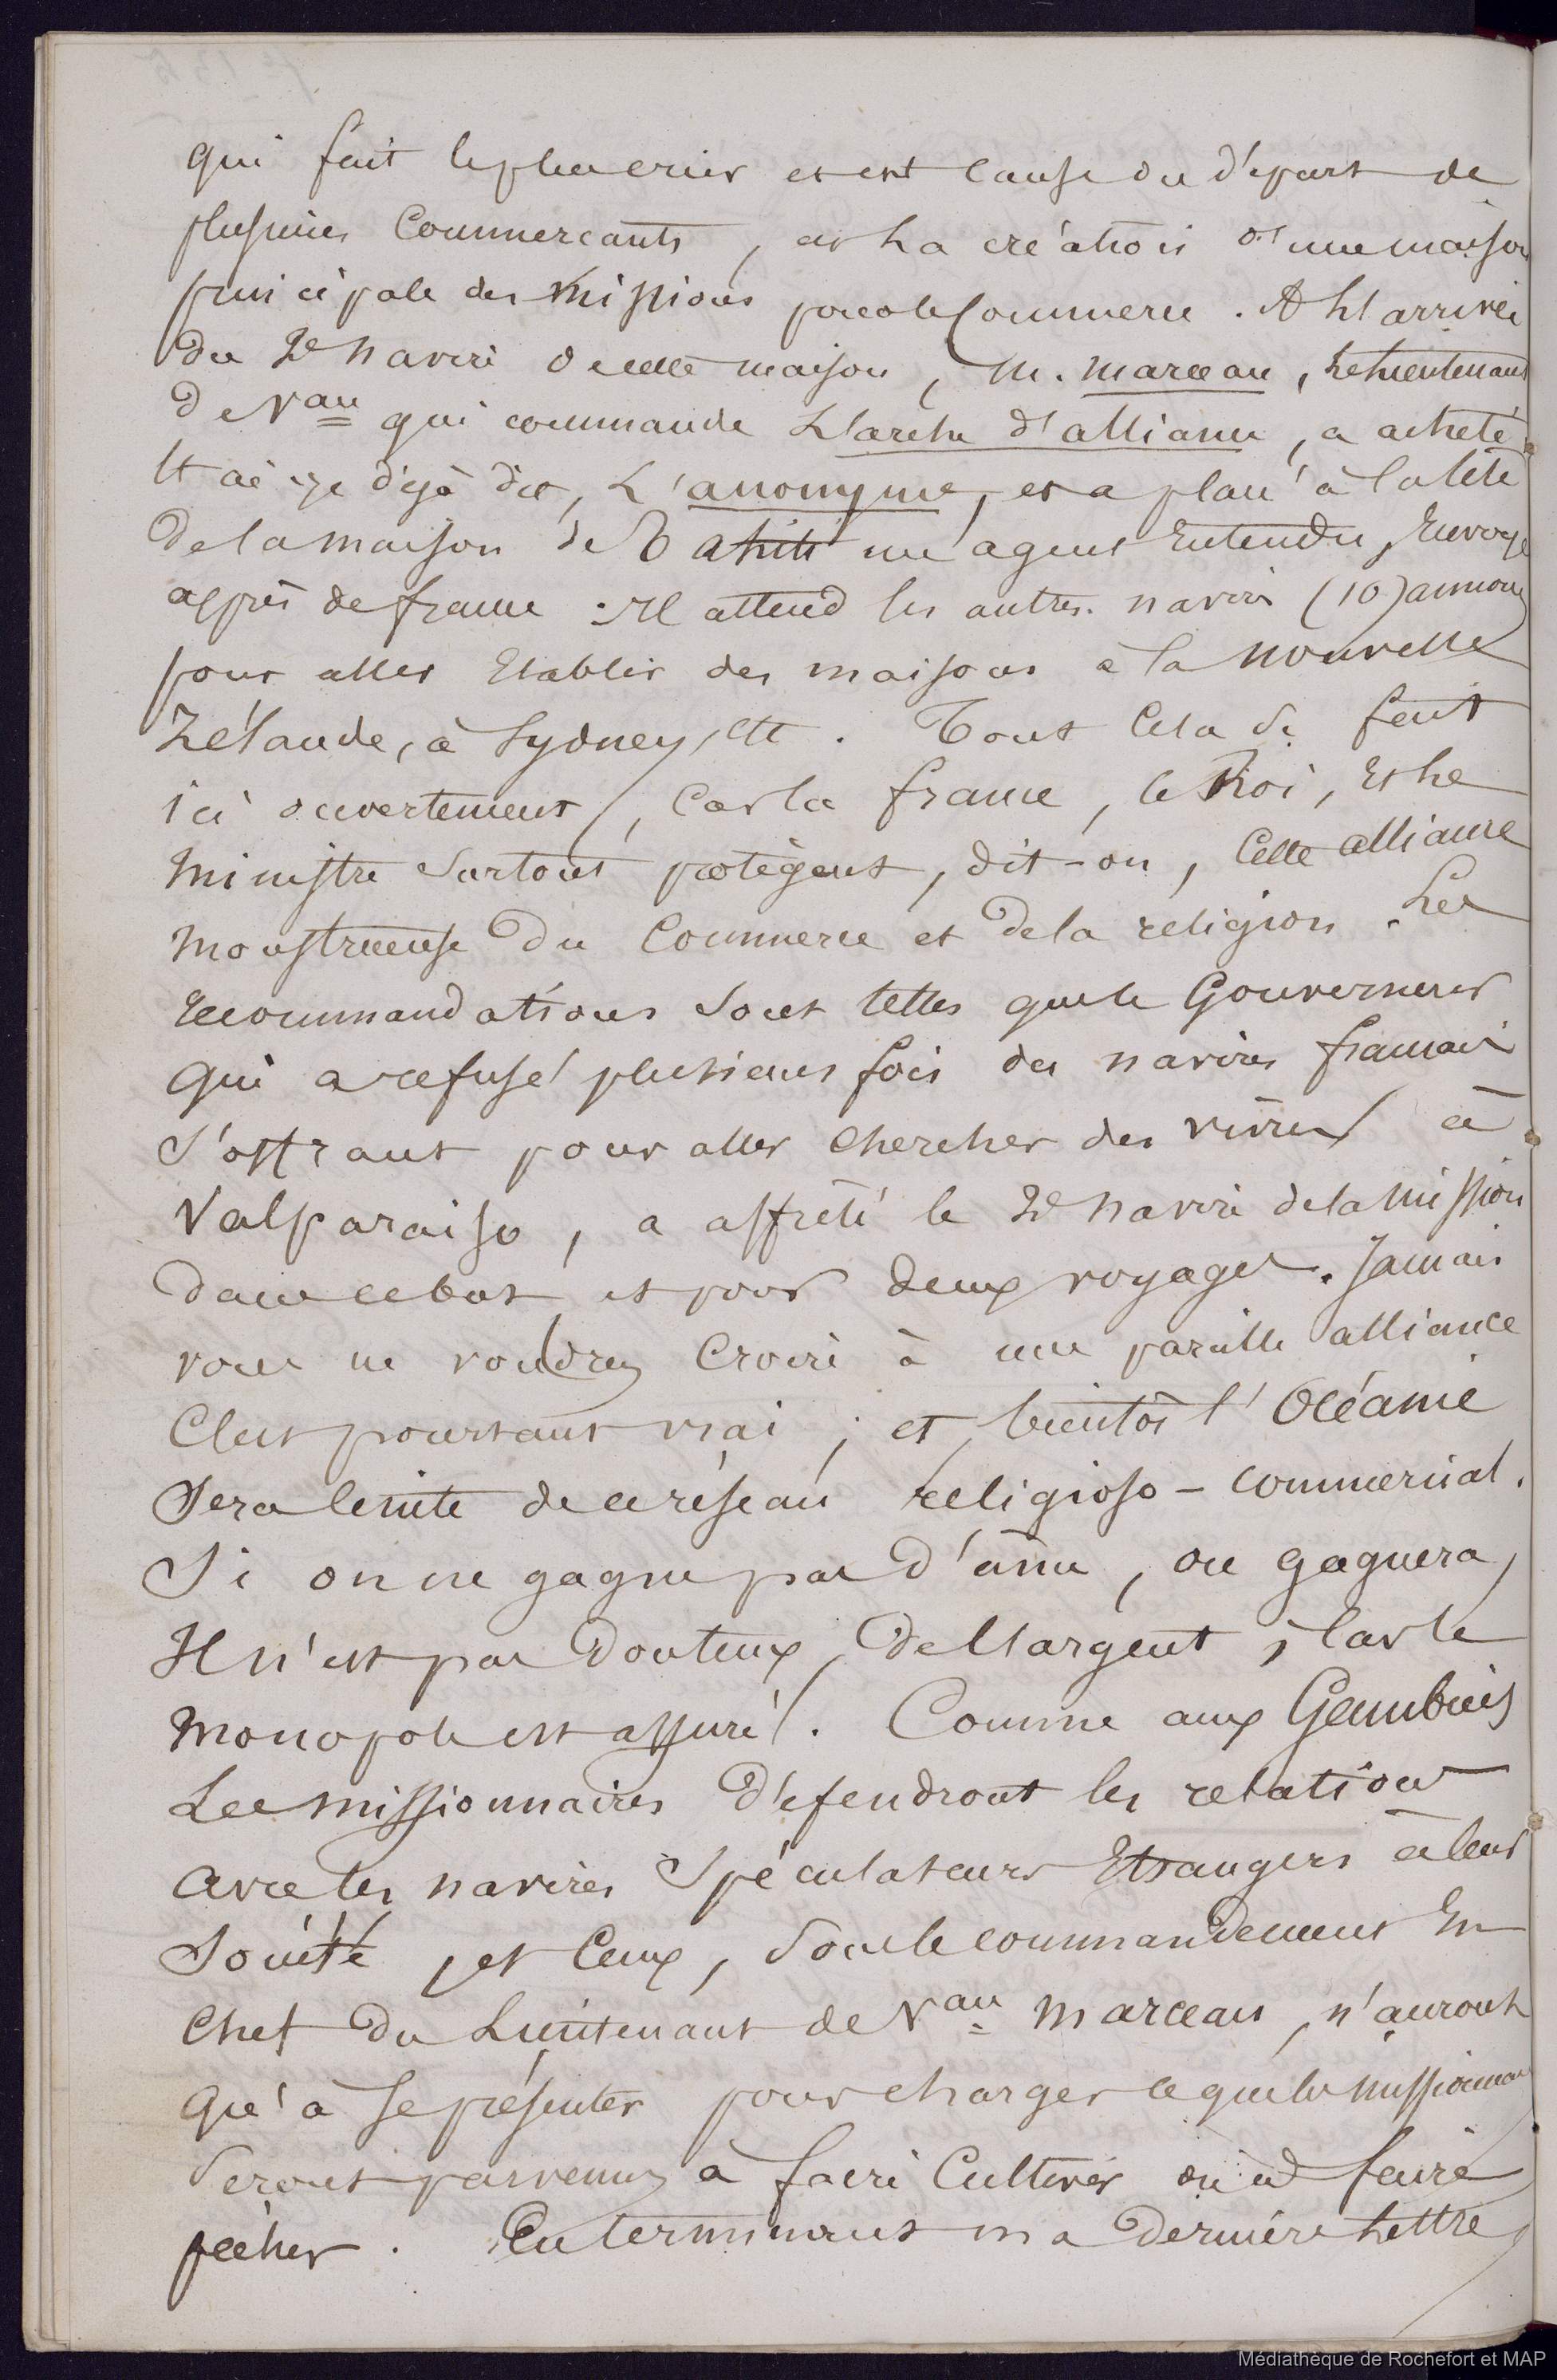 qui fait le plus crier et est cause du départ de
plusieurs Commercants, est La création d'une maison
principale des Missions pour le Commerce. A L'arrivée
du 2e navire de cette maison, M. Marceau, Lieutenant
de Vau qui commande L'arche d'alliance, a acheté
t ai-je déjà dit, L'anonyme, et a placé à la tête
de la maison de Tahiti un agent Entendu, Envoyé
après de france. Il attend les autres navires (10) annoncés
pour aller Etablir des maisons à la Nouvelle
Zélande, à Sydney, ett. Tout Cela se fait
ici ouvertement, Car la france, le Roi, Et Le
Ministre Surtout protègent, dit-on, Cette alliance
Monstrueuse Du Commerce et De la religion. Les
recommandations Sont telles que le Gouverneur
Qui a refusé plusieurs fois des navires francais
S'offrant pour aller Chercher des vivres à
Valparaiso, a affrété le 2e navire de la Mission
Dans ce but et pour deux voyages. Jamais
vous ne voudrez Croire à une pareille alliance
C'est pourtant vrai; et bientôt l'Océanie
Sera de ce réseau religioso-commercial.
Si on ne gagne pas D'âme, on gagnera,
Il n'est pas Douteux, De L'argent, Car le
Monopole est assuré. Comme aux Gambiers
Les missionnaires Défendront les relations
avec les navires Spéculateurs Etrangers à leur
Société, et Ceux, Sous le commandement En
Chef Du Lieutenant de Vau Marceau, n'auront
Qu'à Se présenter pour charger ce que les missionnaires
Seront parvenus à faire Cultiver ou à faire
pêcher. En terminant ma Dernière Lettre
Médiathèque de Rochefort et MAP